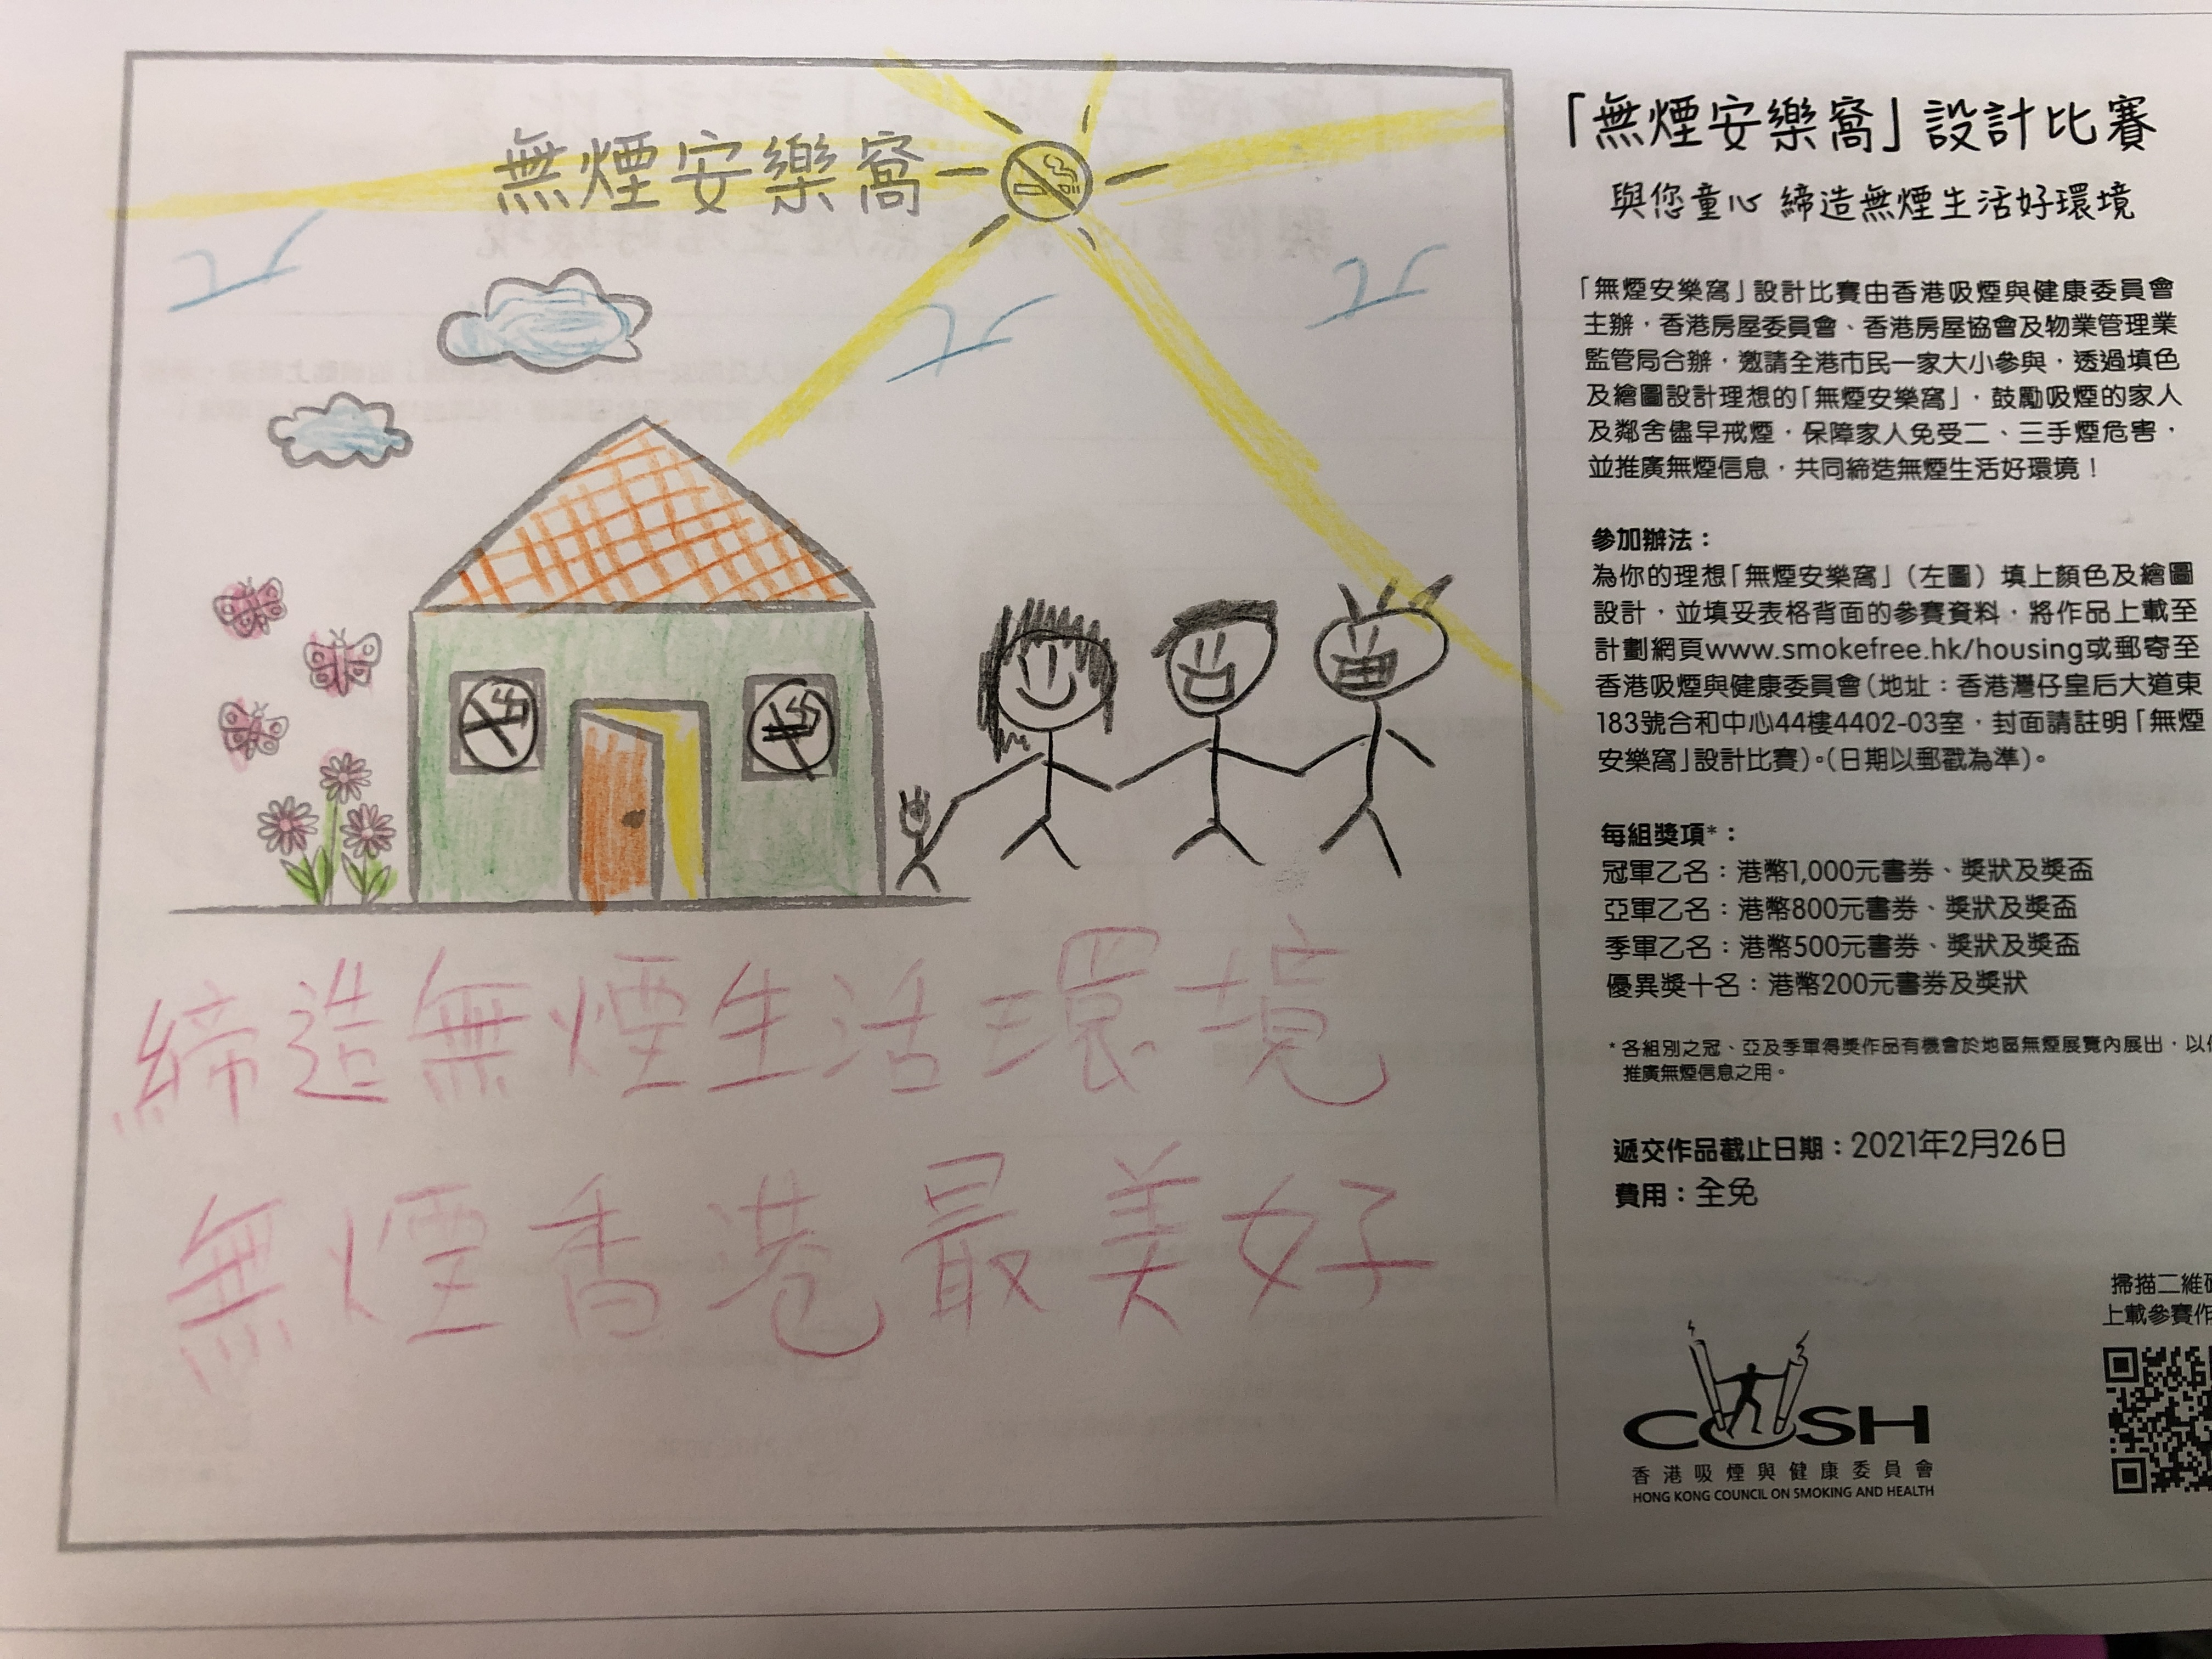 無煙安樂窩
締造無煙生活環境
無煙香港最美好
「無煙安樂窩」設計比賽
與您童心 締造無煙生活好環境
「無煙安樂窩」設計比賽由香港吸煙與健康委員會
主辦，香港房屋委員會、香港房屋協會及物業管理業
監管局合辦，邀請全港市民一家大小參與，透過填色
及繪圖設計理想的「無煙安樂窩」，鼓勵吸煙的家人
及鄰舍儘早戒煙，保障家人免受二、三手煙危害，
並推廣無煙信息，共同締造無煙生活好環境！
參加辦法：
為你的理想「無煙安樂窩」（左圖）填上顏色及繪圖
設計，並填妥表格背面的參賽資料，將作品上載至
計劃網頁www.smokefree.hk/housing或郵寄至
香港吸煙與健康委員會（地址：香港灣仔皇后大道東
183號合和中心44樓4402-03室，封面請註明「無煙
安樂窩」設計比賽）。（日期以郵戳為準）。
每組獎項*：
冠軍乙名：港幣1,000元書券、獎狀及獎盃
亞軍乙名：港幣800元書券、獎狀及獎盃
季軍乙名：港幣500元書券、獎狀及獎盃
優異獎十名：港幣200元書券及獎狀
*各組別之冠、亞及季軍得獎作品有機會於地區無煙展覽內展出，以
推廣無煙信息之用。
遞交作品截止日期：2021年2月26日
費用：全免
掃描二維
上載參賽
COSH
香港吸煙與健康委員會
HONG KONG COUNCIL ON SMOKING AND HEALTH